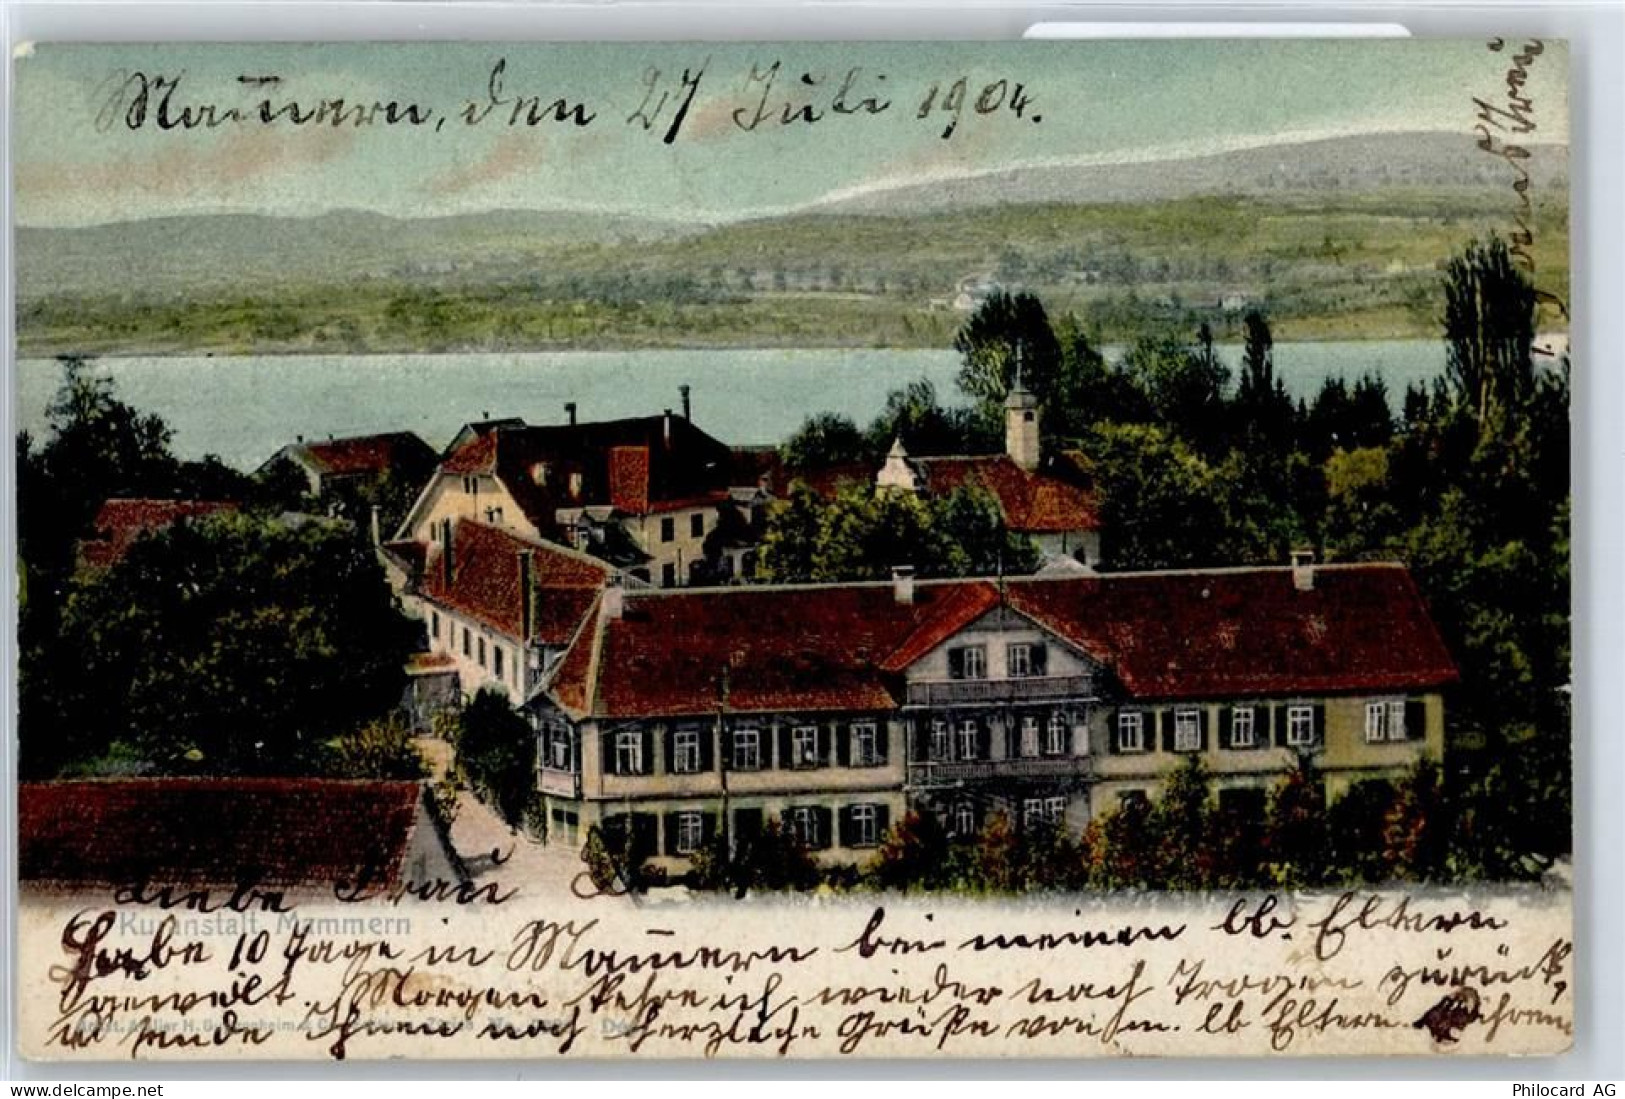 Mam̄ern, den 27 Juli 1904.
Liebe Frau
Kuranstalt Mammern
Habe 10 Tage in Mam̄ern bei meinen lb. Eltern
geweilt. Morgen kehre ich wieder nach Trogen zurück,
u sende Ihnen noch herzliche Grüße von m. lb Eltern.
Philocard AG